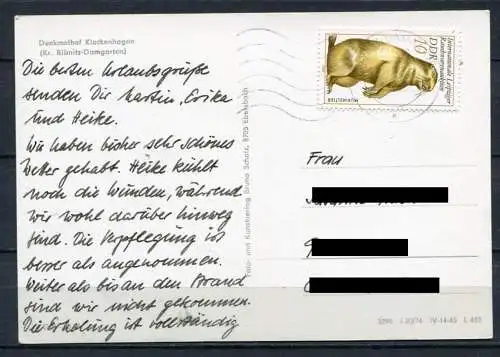 Denkmalhof Klockenhagen
(Kr. Ribnitz-Damgarten)
Die besten Urlaubsgrüße
senden Dir Martin, Erika
und Heike.
Wir haben bisher sehr schönes
Wetter gehabt. Heike kühlt
noch die Wunden, während
wir wohl darüber hinweg
sind. Die Verpflegung ist
besser als angenommen.
Weiter als bis an den Strand
sind wir nicht gekommen.
Die Erholung ist vollständig
Foto- und Kunstverlag Bruno Scholz, 8705 Ebersbach
Internationale Leipziger
Rauchwarenauktion
DDR
10
MURMELTIER
Frau
IV-14-45